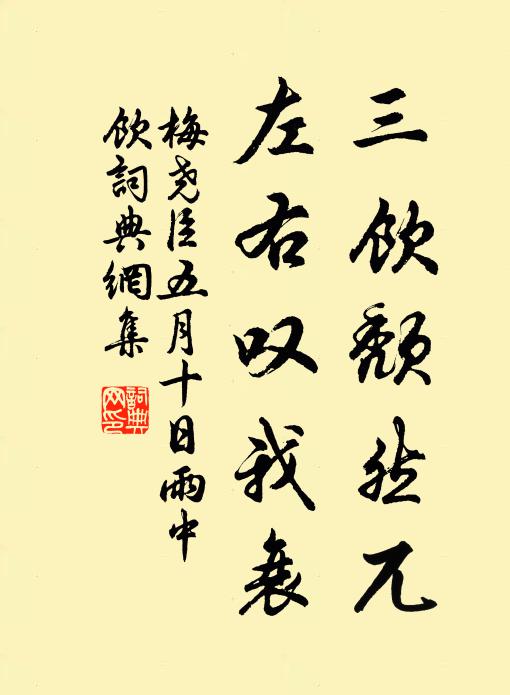 三飲頹然兀
左右叹我衰
梅尧臣五月十日雨中
飲詞典網集
詞典
网印